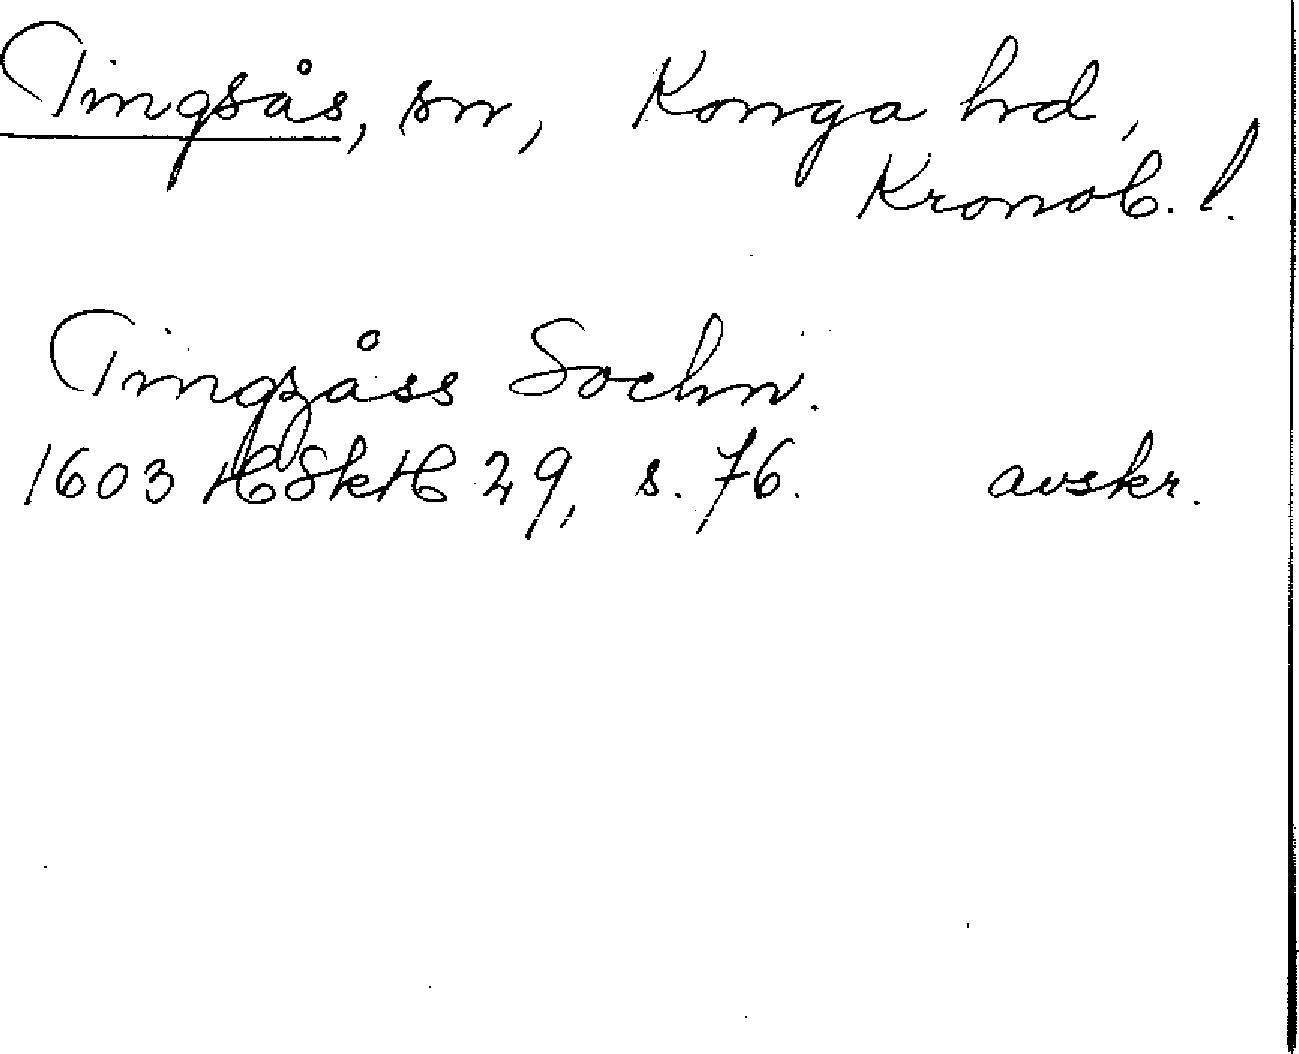 Tingsås, sn, Konga hrd,
Kronob. l.
Tingzåss Sochn.
1603 HSkH 29, s. 76. avskr.